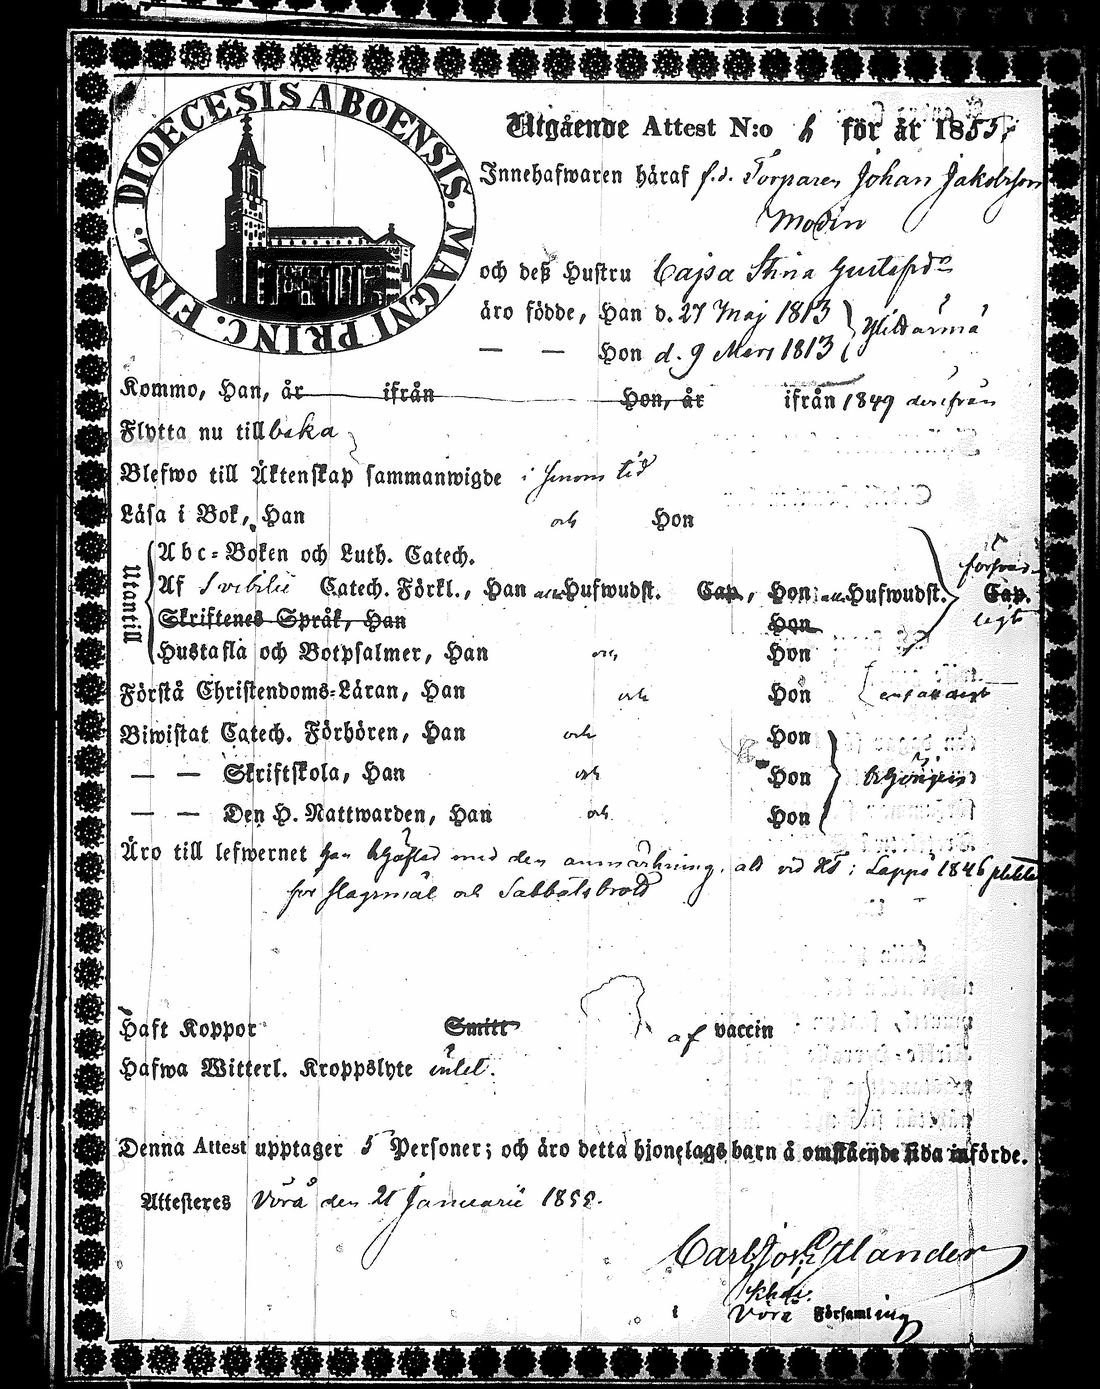 DIOECESIS ABOENSIS. MAGNI PRINC. FINL.
Utgående Attest N:o 6 för år 1855.
Innehafwaren häraf f.d. Torparen Johan Jakobsson
Modin
och deß Hustru Cajsa Stina Gustafsdr
äro födde, Han d. 27 Maj 1813
— — Hon d. 9 Mars 1813 Ylistarmå
Kommo, Han, år ifrån Hon, år ifrån 1849 derifrån
Flytta nu till
Blefwo till Äktenskap sammanwigde i sinom tid
Läsa i Bok, Han och Hon
Utantill
Abc-Boken och Luth. Catech.
Af Svebilii Catech. Förkl., Han alla Hufwudst. Cap., Hon alla Hufwudst. Cap.
Skriftenes Språk, Han Hon
Hustafla och Botpsalmer, Han och Hon
Förstå Christendoms-Läran, Han och Hon enfaldigt
Biwistat Catech. Förhören, Han och Hon
— — Skriftskola, Han och Hon behörigen
— — Den H. Nattwarden, Han och Hon
Äro till lefwernet han med den anmärkning, att vid HT i Lappo 1846 pliktat
för slagsmål och Sabbatsbrott
Haft Koppor Smitt af vaccin
Hafwa Witterl. Kroppslyte intet.
Denna Attest upptager 5 Personer; och äro detta hjonelags barn å omstående sida införde.
Attesteres Vörå den 21 Januarii 1855.
Carl
i Vörå Församling